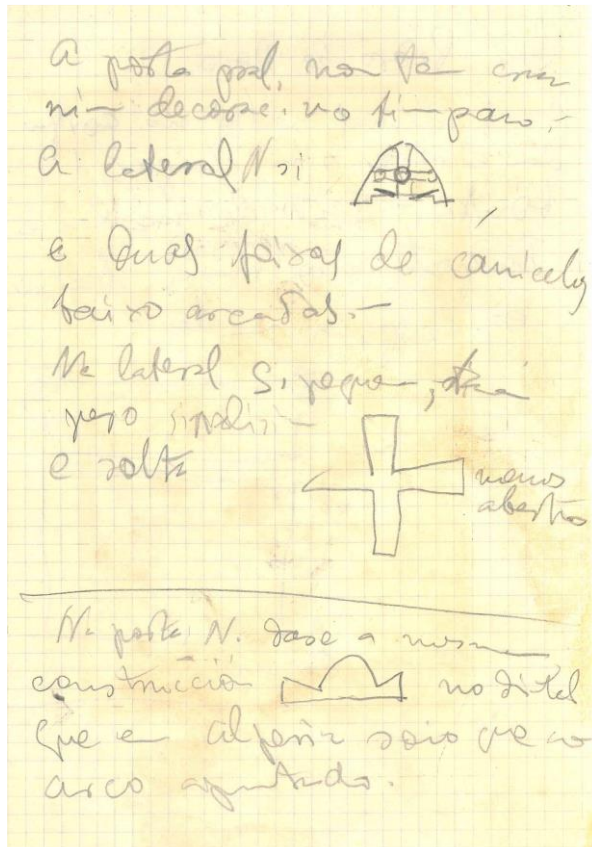 A porta pral, non ten cruz
nin decorac. no tímpano.-
A lateral N si
e duas faixas de canicelos
baixo arcadas.-
Na lateral S, pequena,
pero
e solta
menos
abertos
Na porta N. dase a mesma
construcción no dintel
que en saio que no
arco apuntado.